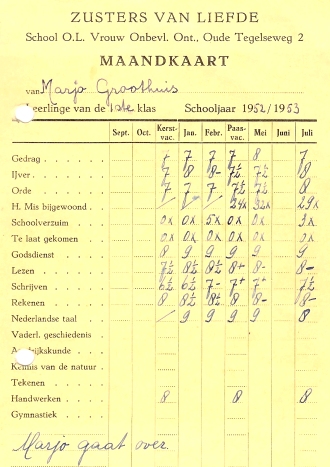 ZUSTERS VAN LIEFDE
School O.L. Vrouw Onbevl. Ont., Oude Tegelseweg 2
MAANDKAART
van Marjo Groothuis
Leerlinge van de 1ste klas Schooljaar 1952/1953
Sept. Oct. Kerst-vac. Jan. Febr. Paas-vac. Mei Juni Juli
Gedrag 7 7 7 7 8 7
IJver 7 8 8- 7½ 7½ 8
Orde 7 7 7 7½ 7½ 8
H. Mis bijgewoond 24x 32x 29x
Schoolverzuim 0x 0x 5x 0x 0x 3x
Te laat gekomen 0x 0x 0x 0x 0x 0x
Godsdienst 8 9 9 9 9 9
Lezen 7½ 8½ 8½ 8+ 8- 8-
Schrijven 6½ 6½ 7- 7+ 7+ 7½
Rekenen 8 8½ 8½ 8 8- 8-
Nederlandse taal / 9 9 9 9 8
Vaderl. geschiedenis
Kennis van de natuur
Tekenen
Handwerken 8 8 8
Gymnastiek
Marjo gaat over.